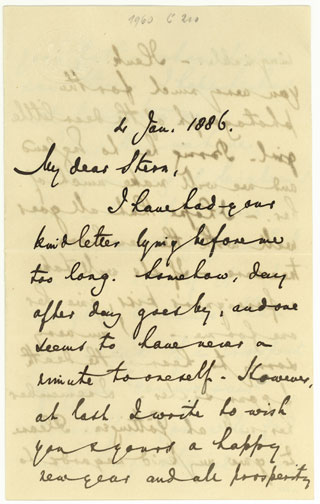 1960 C 210
4 Jan. 1886.
My dear Stern,
I have had your
kind letter lying before me
too long. Somehow, day
after day goes by, and one
seems to have never a
minute to oneself - However,
at last I write to wish
you & yours a happy
new year and all prosperity